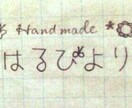 Handmade
はるびより